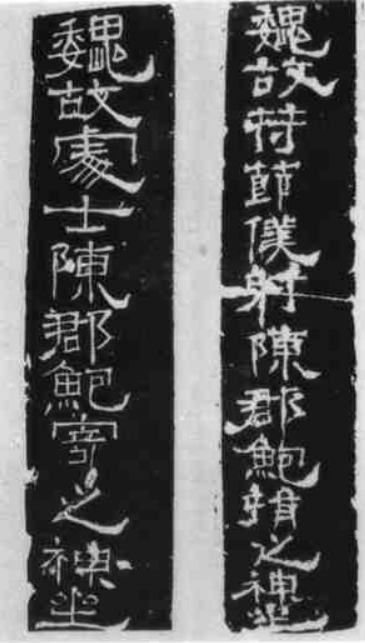 魏故符節僕射陳郡鮑捐之神坐
魏故處士陳郡鮑寄之神坐